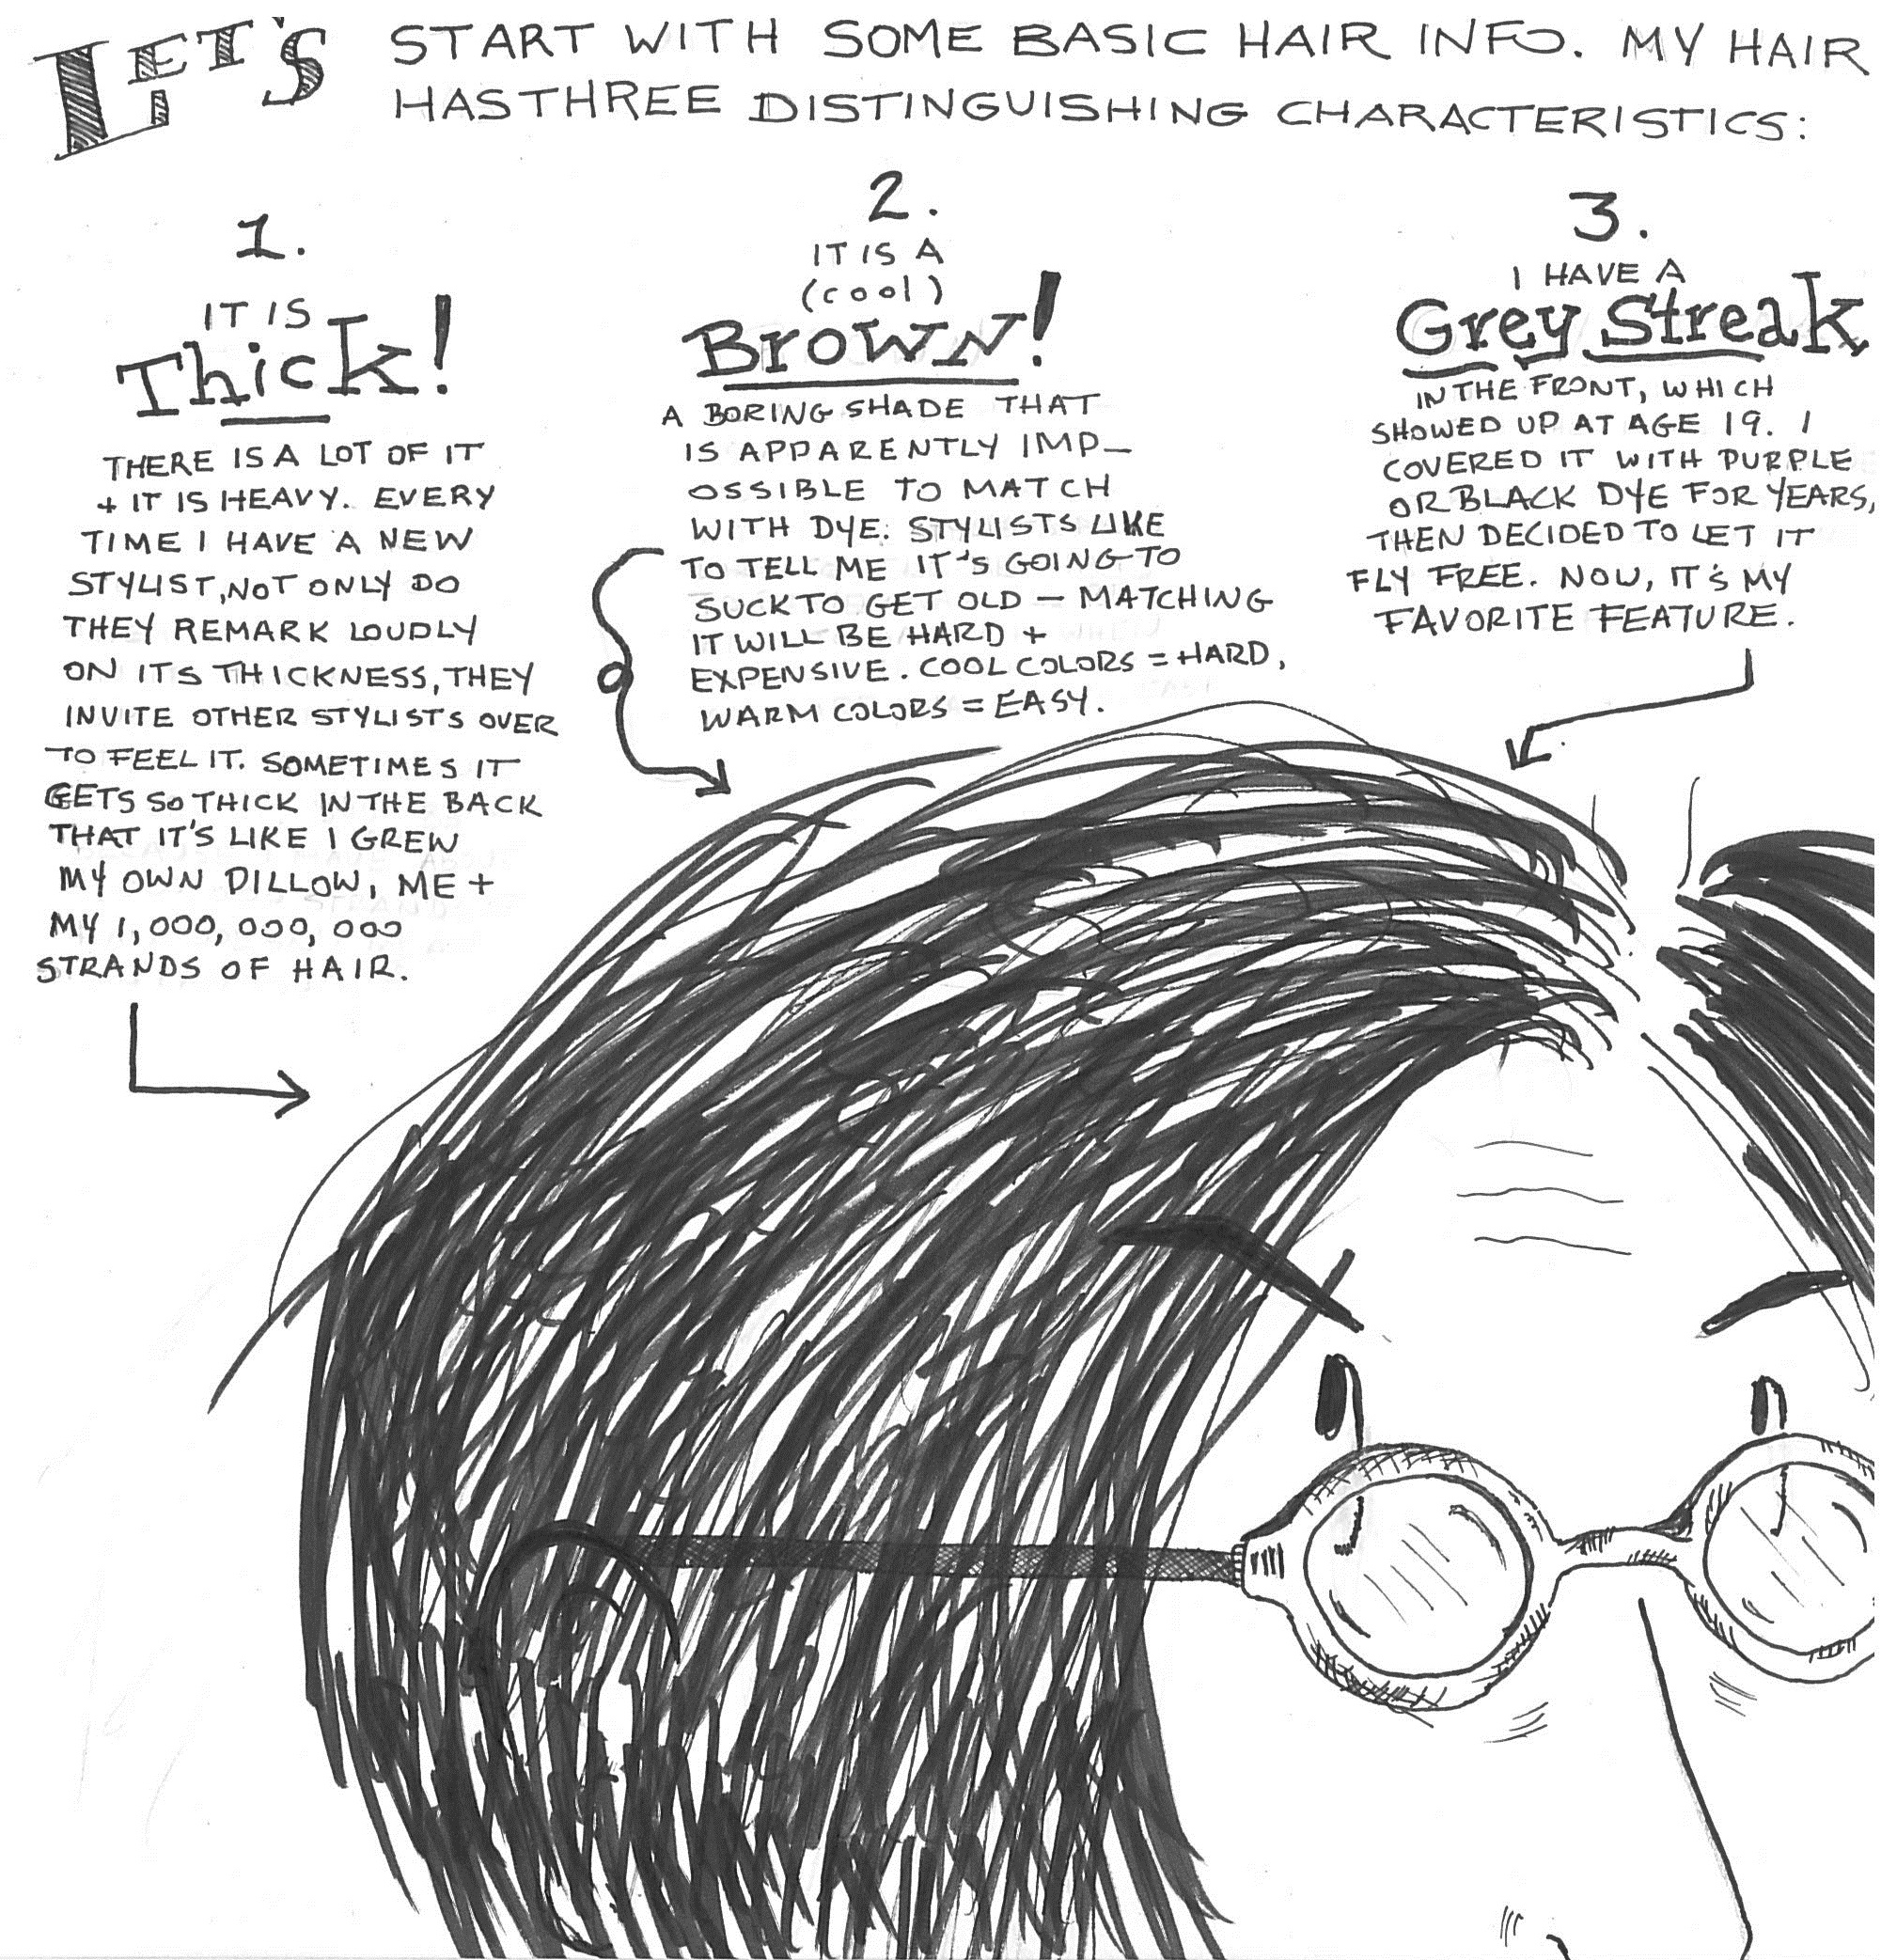 LET'S START WITH SOME BASIC HAIR INFO. MY HAIR
HAS THREE DISTINGUISHING CHARACTERISTICS:
1.
IT IS
Thick!
THERE IS A LOT OF IT
+ IT IS HEAVY. EVERY
TIME I HAVE A NEW
STYLIST, NOT ONLY DO
THEY REMARK LOUDLY
ON ITS THICKNESS, THEY
INVITE OTHER STYLISTS OVER
TO FEEL IT. SOMETIMES IT
GETS SO THICK IN THE BACK
THAT IT'S LIKE I GREW
MY OWN PILLOW, ME +
MY 1,000,000,000
STRANDS OF HAIR.
2.
IT IS A
(cool)
BROWN!
A BORING SHADE THAT
IS APPARENTLY IMP-
OSSIBLE TO MATCH
WITH DYE. STYLISTS LIKE
TO TELL ME IT'S GOING TO
SUCK TO GET OLD – MATCHING
IT WILL BE HARD +
EXPENSIVE. COOL COLORS = HARD,
WARM COLORS = EASY.
3.
I HAVE A
Grey Streak
IN THE FRONT, WHICH
SHOWED UP AT AGE 19. I
COVERED IT WITH PURPLE
OR BLACK DYE FOR YEARS,
THEN DECIDED TO LET IT
FLY FREE. NOW, IT'S MY
FAVORITE FEATURE.